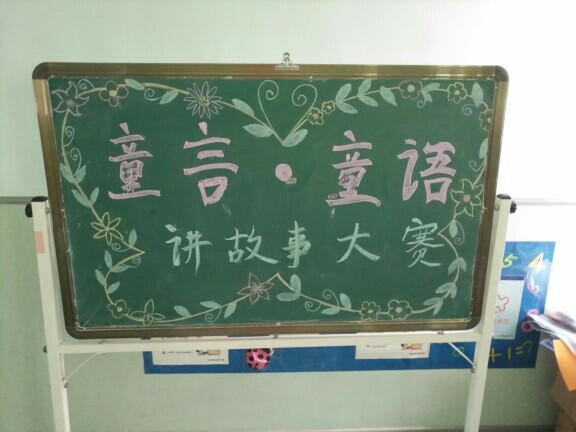 童言·童语
讲故事大赛
+1=?